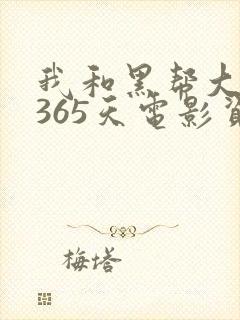 我和黑帮大
365天电影
梅塔